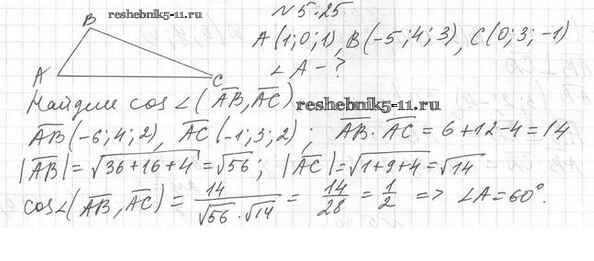 reshebnik5-11.ru
N 5.25
A(1;0;1), B(-5;4;3), C(0;3;-1)
∠A-?
B
A
C
Найдем cos∠(AB, AC)
reshebnik5-11.ru
AB(-6;4;2), AC(-1;3;2); AB·AC = 6+12-4=14
|AB|=√36+16+4=√56; |AC|=√1+9+4=√14
cos∠(AB, AC) = 14/√56·√14 = 14/28 = 1/2 => ∠A=60°.